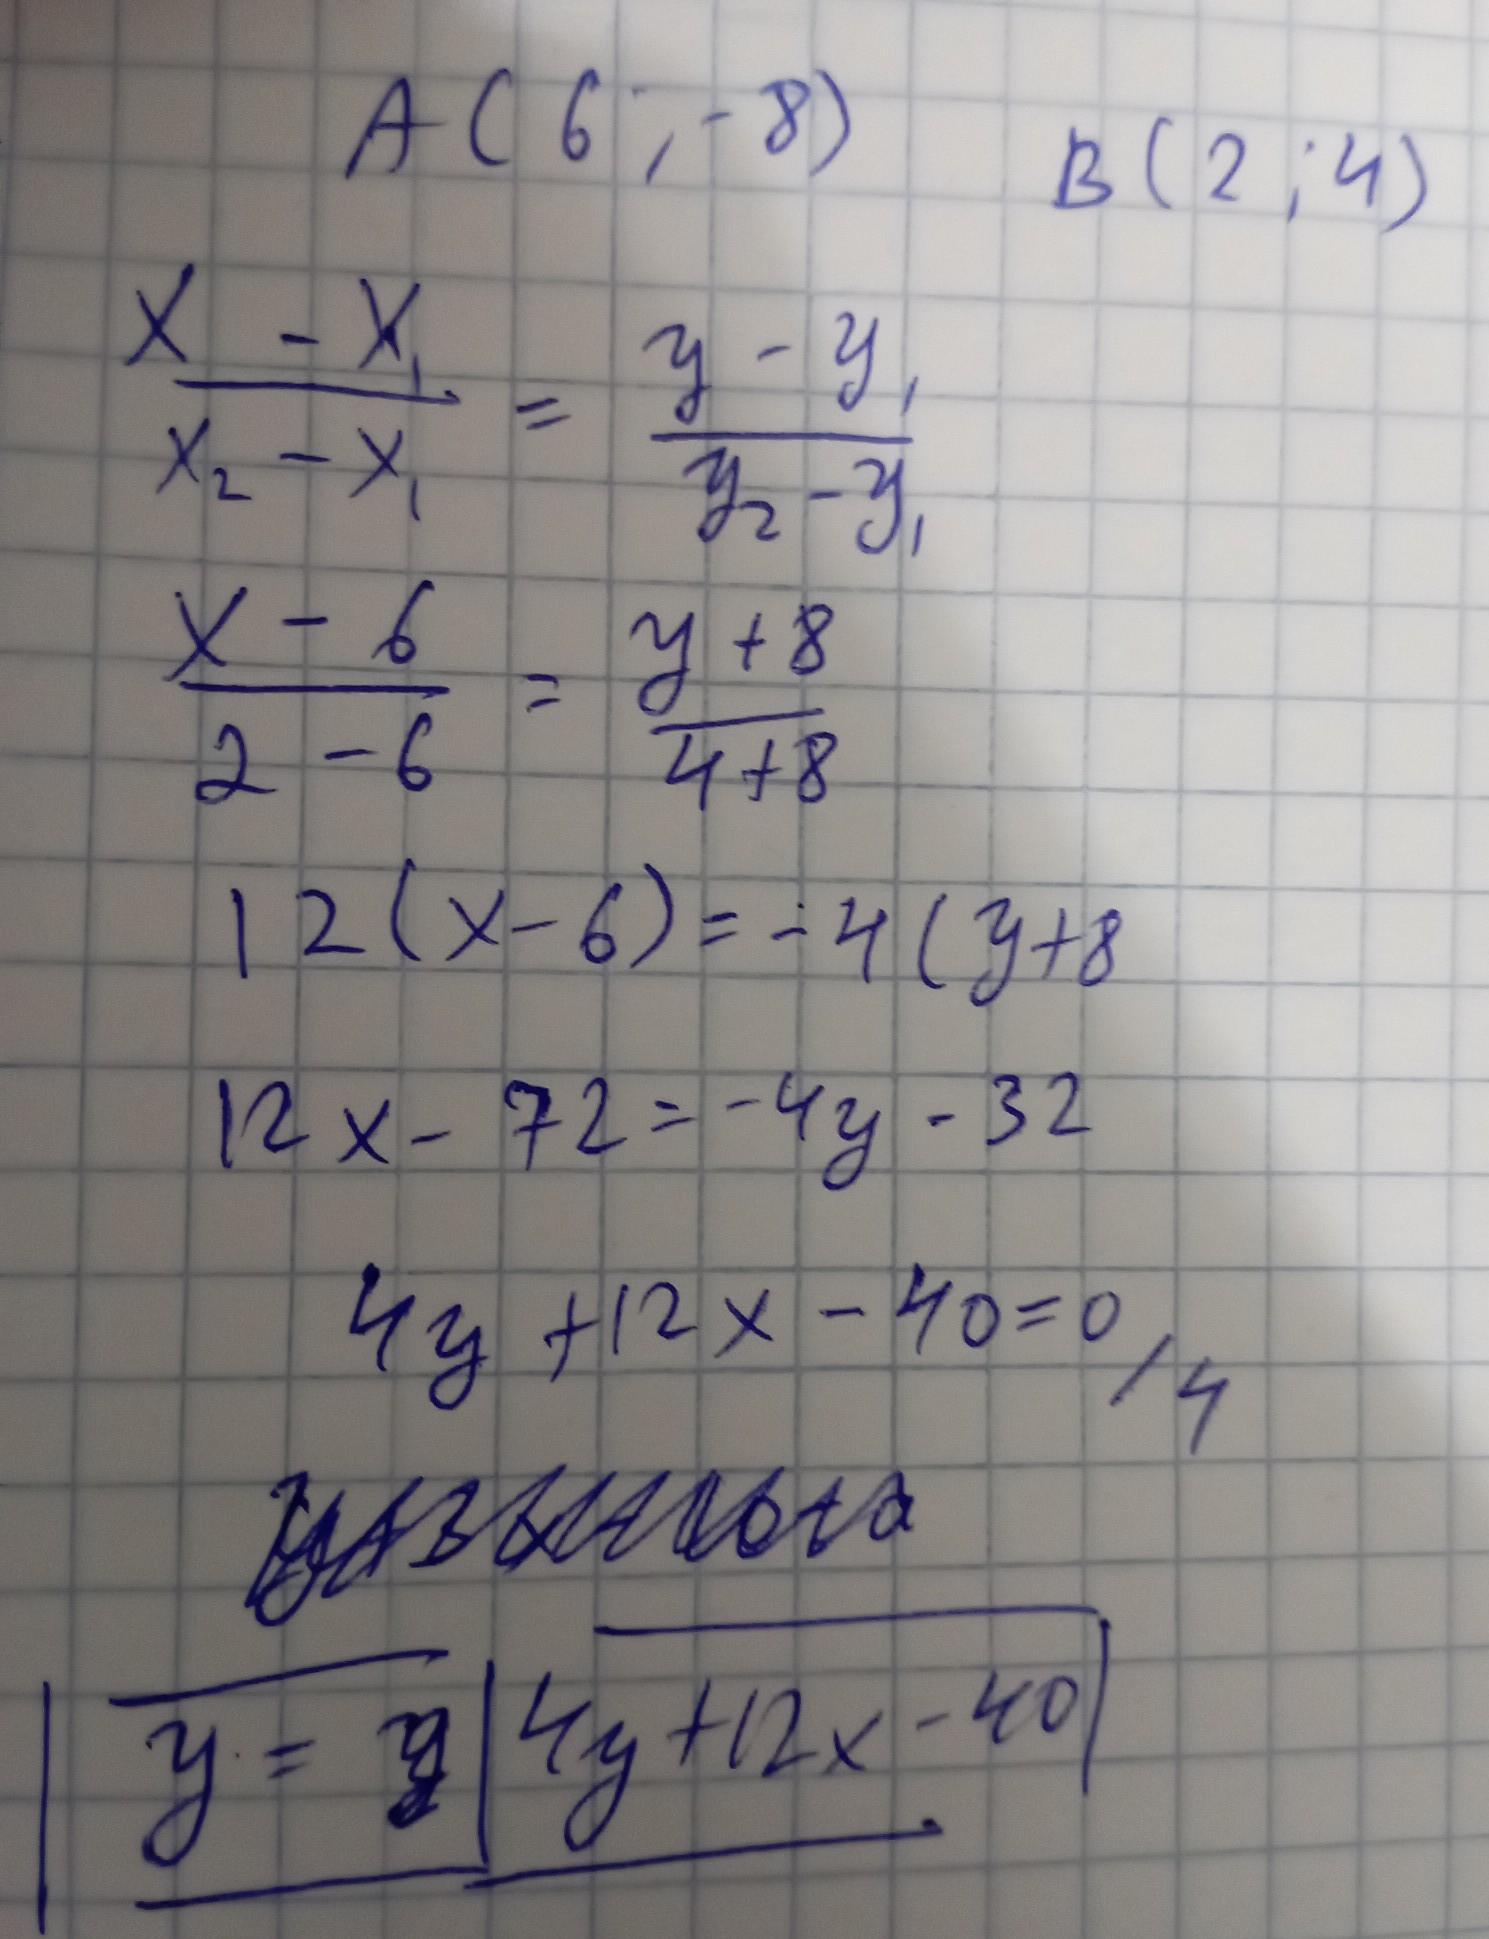 A ( 6 ; -8) B ( 2 ; 4)
x - x₁ / x₂ - x₁ = y - y₁ / y₂ - y₁
x - 6 / 2 - 6 = y + 8 / 4 + 8
12 (x - 6) = -4 (y + 8
12x - 72 = -4y - 32
4y + 12x - 40 = 0 / 4
y = 4y + 12x - 40